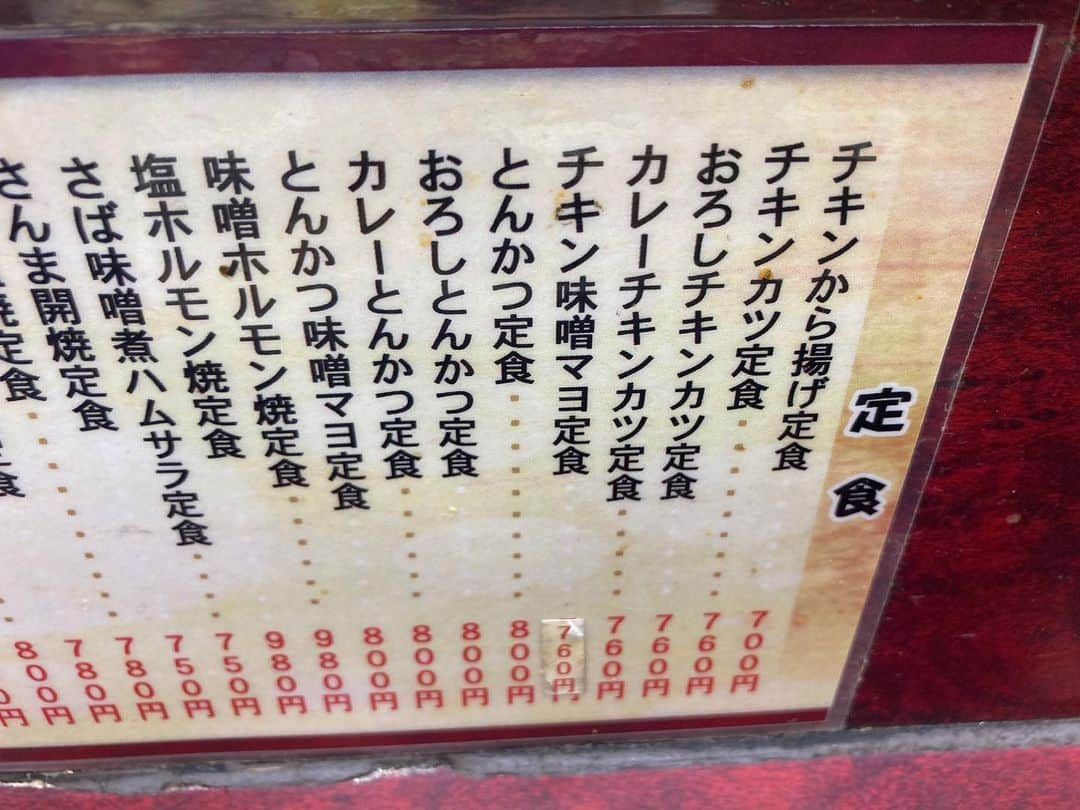 定食
チキンから揚げ定食 700円
チキンカツ定食 760円
おろしチキンカツ定食 760円
カレーチキンカツ定食 760円
チキン味噌マヨ定食 760円
とんかつ定食 800円
おろしとんかつ定食 800円
カレーとんかつ定食 800円
とんかつ味噌マヨ定食 800円
味噌ホルモン焼定食 980円
塩ホルモン焼定食 980円
さば味噌煮ハムサラ定食 750円
さんま開焼定食 750円
焼定食 780円
食 780円
800円
0円